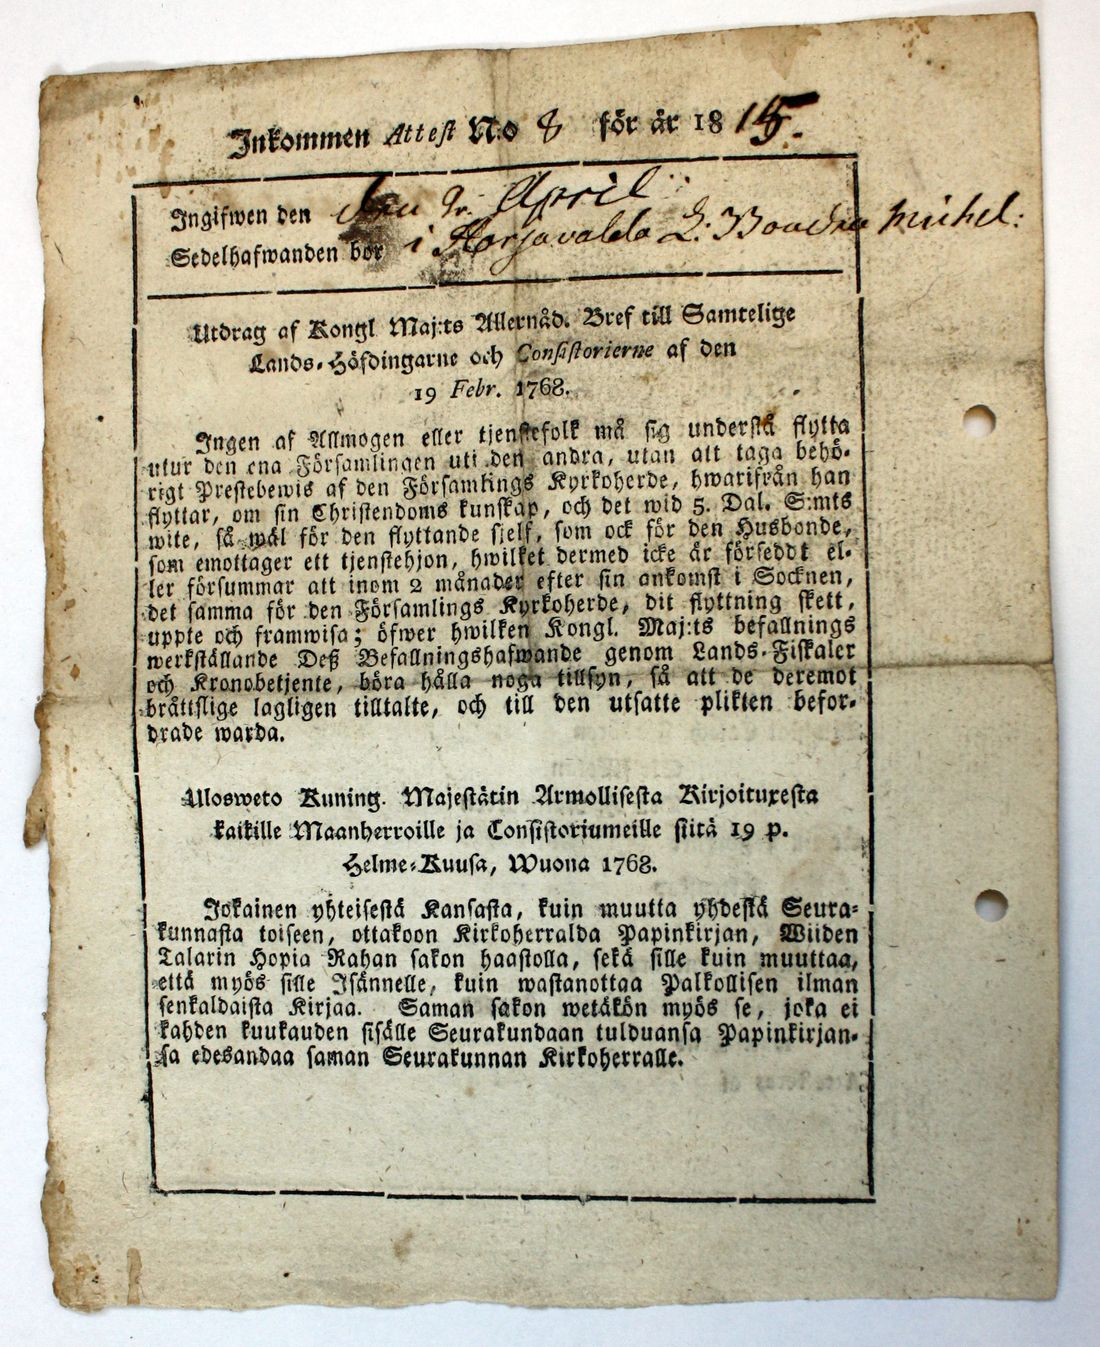 Inkommen Attest N:o 8 för år 1815.
Ingifwen den den 2. April
Sedelhafwanden bor i Harjavalda L: Bonden Michel:
Utdrag af Kongl. Maj:ts Allernåd. Bref till Samtelige
Lands-Höfdingarne och Consistorierne af den
19 Febr. 1768.
Ingen af Allmogen eller tjenstefolk må sig understå flytta
utur den ena Församlingen uti den andra, utan att taga behö-
rigt Prestebewis af den Församlings Kyrkoherde, hwarifrån han
flyttar, om sin Christendoms kunskap, och det wid 5. Dal. S:mts
wite, så wäl för den flyttande sjelf, som ock för den Husbonde,
som emottager ett tjenstehjon, hwilket dermed icke är försedt el-
ler försummar att inom 2 månader efter sin ankomst i Socknen,
det samma för den Församlings Kyrkoherde, dit flyttning skett,
uppte och framwisa; öfwer hwilken Kongl. Maj:ts befallnings
werkställande Deß Befallningshafwande genom Lands-Fiskaler
och Kronobetjente, böra hålla noga tillsyn, så att de deremot
bråttslige lagligen tilltalte, och till den utsatte plikten befor-
drade warda.
Ulosweto Kuning. Majestätin Armollisesta Kirjoituxesta
kaikille Maanherroille ja Consistoriumeille siitä 19 p.
Helme-Kuusa, Wuona 1768.
Jokainen yhteisestä Kansasta, kuin muutta yhdestä Seura-
kunnasta toiseen, ottakoon Kirkoherralda Papinkirjan, Wiiden
Talarin Hopia Rahan sakon haastolla, sekä sille kuin muuttaa,
että myös sille Isännelle, kuin wastanottaa Palkollisen ilman
senkaldaista Kirjaa. Saman sakon wetäkön myös se, joka ei
kahden kuukauden sisälle Seurakundaan tulduansa Papinkirjan-
sa edesandaa saman Seurakunnan Kirkoherralle.